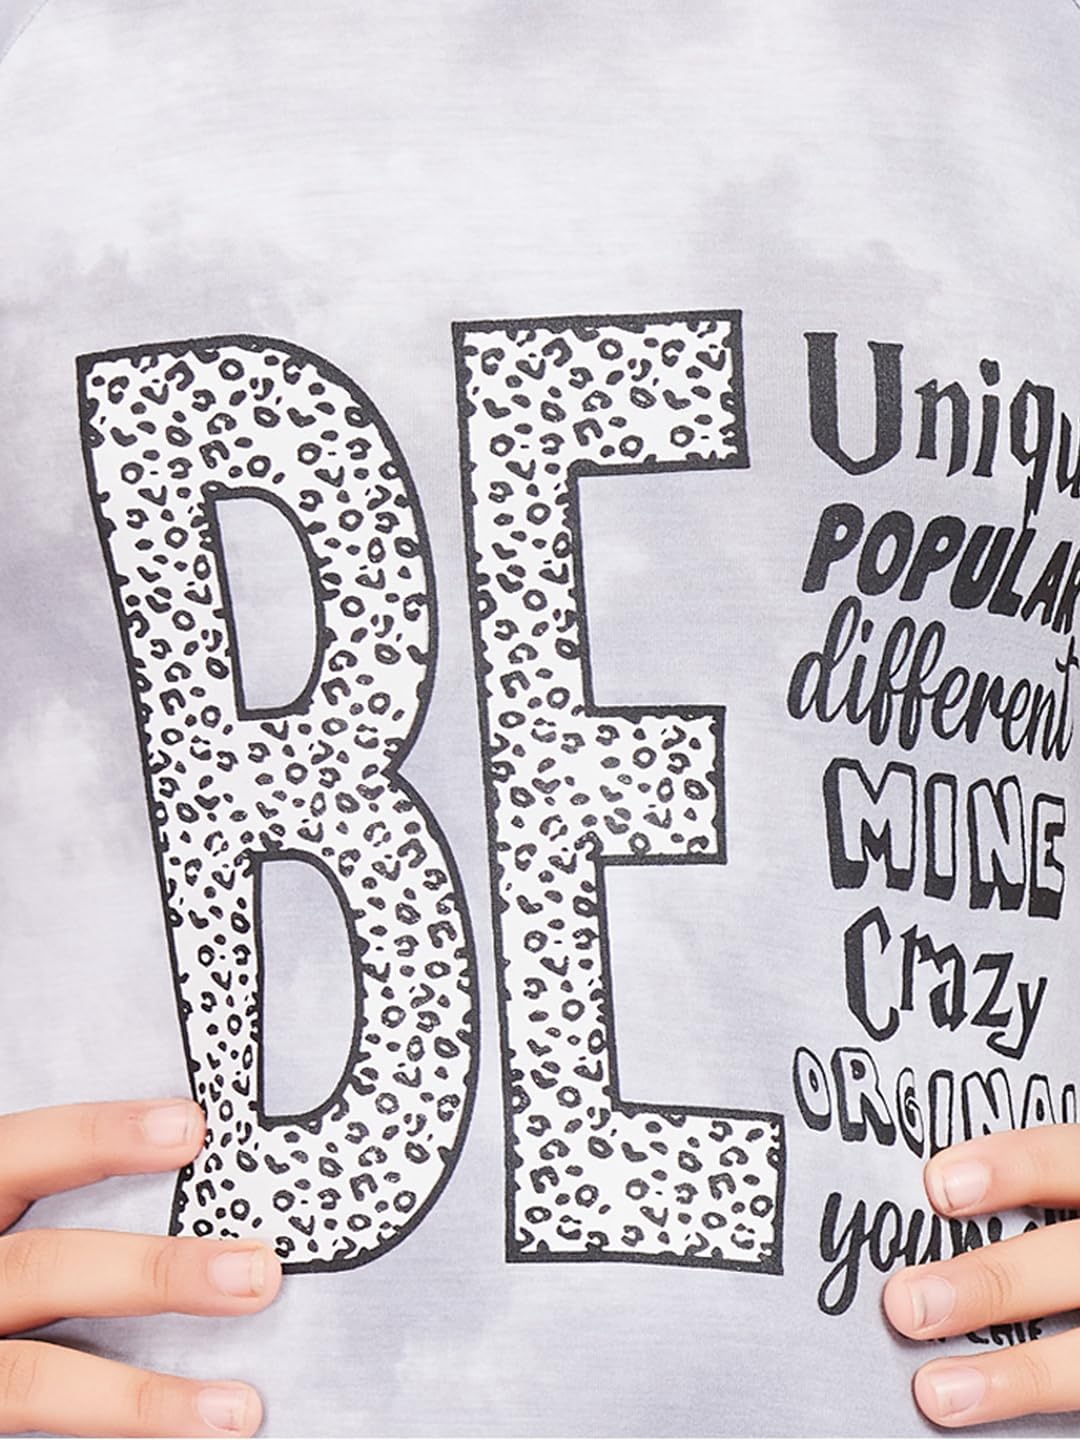 BE
Uniqu
POPULAR
different
MINE
Crazy
ORGINAL